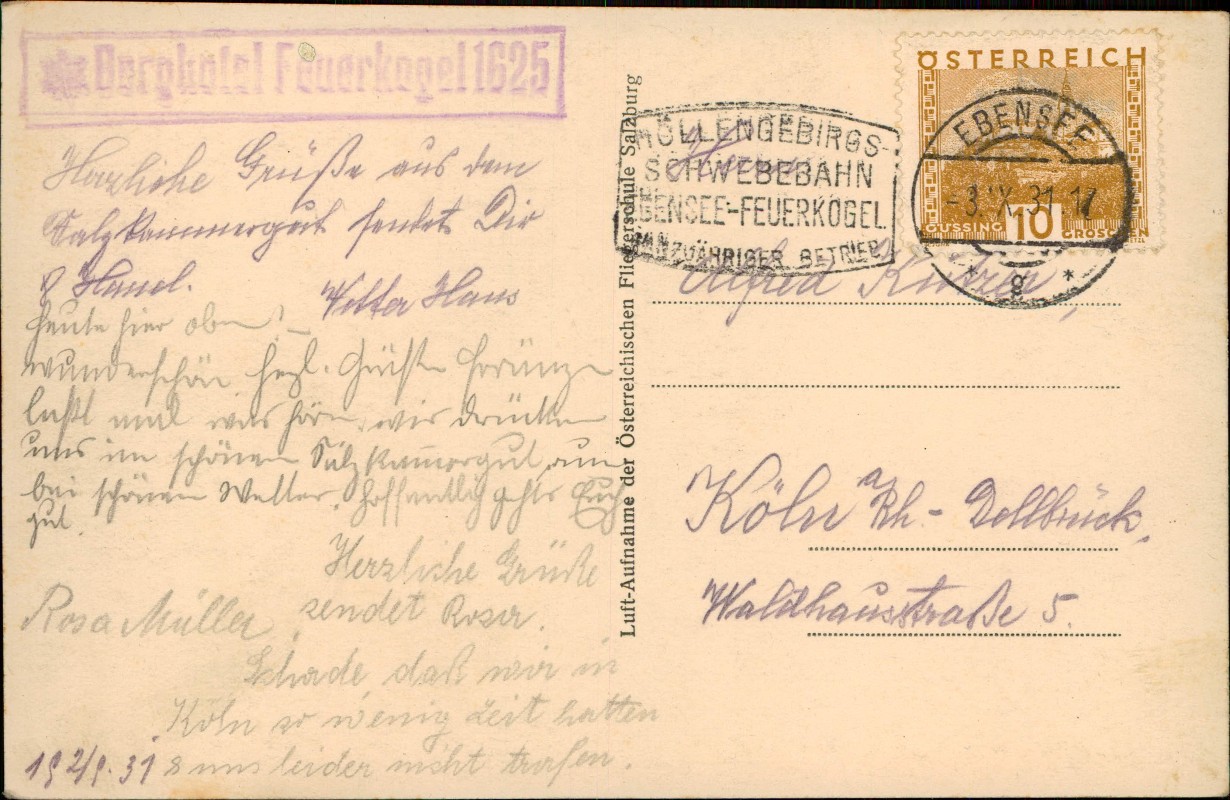 Berghotel Feuerkogel 1625
Herzliche Grüße aus dem
Salzkammergut sendet Dir
Vetter Hans
heute hier oben!
wunderschön herzl. Grüße
laßt mal was hören, wir drücken
uns im schönen Salzkammergut rum
bei schönem Wetter. Hoffentlich gehts Euch
gut.
Herzliche Grüße
sendet Rosa.
Rosa Müller
Schade, daß wir in
Köln so wenig Zeit hatten
& uns leider nicht trafen.
31
Luft-Aufnahme der Österreichischen Fliegerschule Salzburg
HÖLLENGEBIRGS-
SCHWEBEBAHN
EBENSEE-FEUERKOGEL
GANZJÄHRIGER BETRIEB
ÖSTERREICH
EBENSEE
-3.IX.31.17
GÜSSING 10 GROSCHEN
* g *
Herrn
Alfred
Köln a/Rh - Dellbrück,
Waldhausstraße 5.